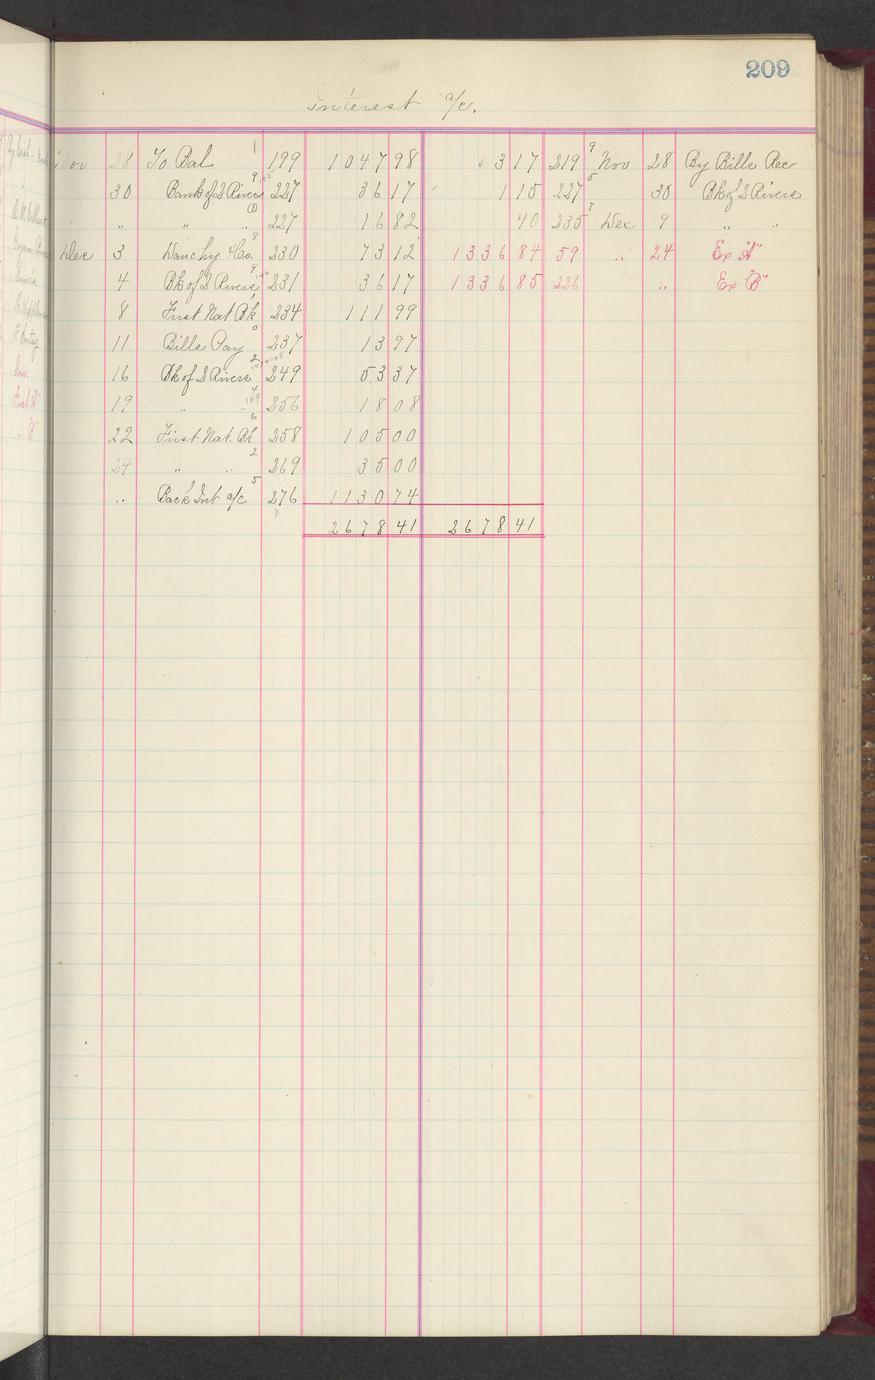 209
Interest a/c.
Nov 28 To Bal 1 199 1047 98 3 17 219 9 Nov 28 By Bills Rec
30 Bank of 2 Rivers 9 227 36 17 1 15 227 5 30 Bk of 2 Rivers
" " " 227 16 82 40 235 7 Dec 9 " "
Dec 3 & Co. 8 230 73 12 1336 84 59 " 24 Ex "A"
4 Bk of 2 Rivers 9 231 36 17 1336 85 226 " Ex "B"
8 First Nat Bk 234 111 99
11 Bills Pay 0 237 13 97
16 Bk of 2 Rivers 2 249 53 37
19 " " 4 256 18 08
22 First Nat. Bk 6 258 105 00
24 " " 2 269 35 00
" Back Int a/c 5 276 1130 74
2678 41 2678 41